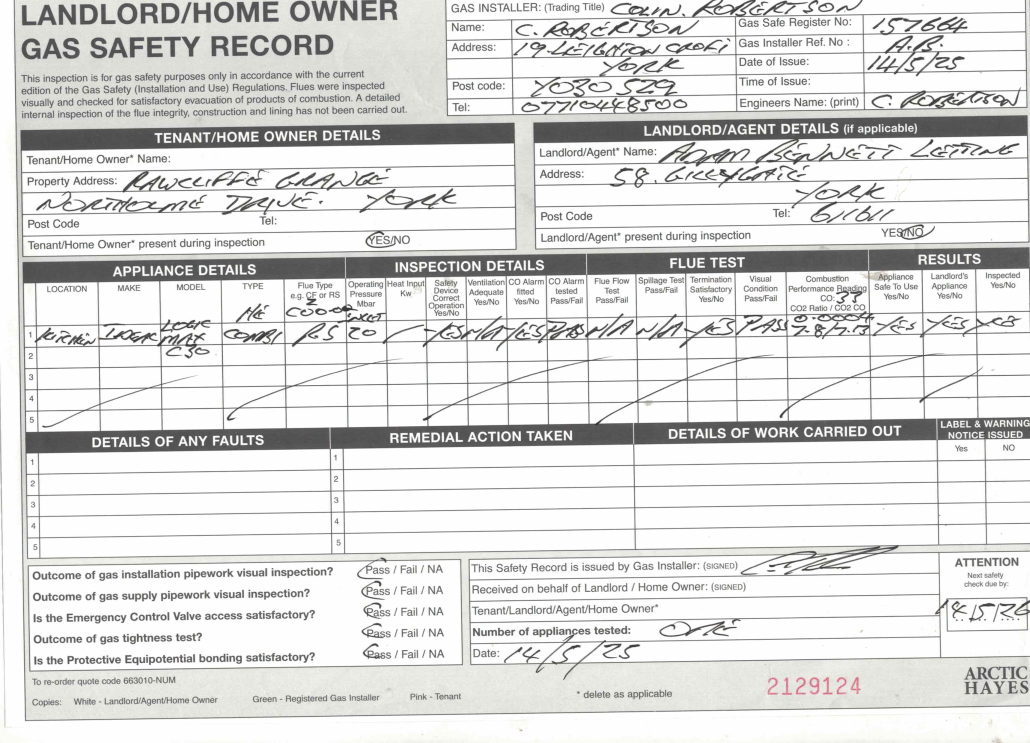 LANDLORD/HOME OWNER
GAS SAFETY RECORD
This inspection is for gas safety purposes only in accordance with the current
edition of the Gas Safety (Installation and Use) Regulations. Flues were inspected
visually and checked for satisfactory evacuation of products of combustion. A detailed
internal inspection of the flue integrity, construction and lining has not been carried out.
GAS INSTALLER: (Trading Title) COLIN. ROBERTSON
Name: C. ROBERTSON
Gas Safe Register No: 157664
Address: 19. LEIGHTON CROFT
Gas Installer Ref. No : A.B.
YORK
Date of Issue: 14/5/25
Post code: YO30 5Z9
Time of Issue:
Tel: 07710448500
Engineers Name: (print) C. ROBERTSON
TENANT/HOME OWNER DETAILS
Tenant/Home Owner* Name:
Property Address: RAWCLIFFE GRANGE
NORTHOLME DRIVE. YORK
Post Code Tel:
Tenant/Home Owner* present during inspection YES/NO
LANDLORD/AGENT DETAILS (if applicable)
Landlord/Agent* Name: ADAM BENNETT LETTING
Address: 58. GILLYGATE
YORK
Post Code Tel: 611611
Landlord/Agent* present during inspection YES/NO
APPLIANCE DETAILS INSPECTION DETAILS FLUE TEST RESULTS
LOCATION
MAKE
MODEL
TYPE
Flue Type
e.g. CF or RS
Operating
Pressure
Mbar
INLET
Heat Input
Kw
Safety
Device
Correct
Operation
Yes/No
Ventilation
Adequate
Yes/No
CO Alarm
fitted
Yes/No
CO Alarm
tested
Pass/Fail
Flue Flow
Test
Pass/Fail
Spillage Test
Pass/Fail
Termination
Satisfactory
Yes/No
Visual
Condition
Pass/Fail
Combustion
Performance Reading
CO: 33
CO2 Ratio / CO2 CO
Appliance
Safe To Use
Yes/No
Landlord's
Appliance
Yes/No
Inspected
Yes/No
1 KITCHEN LOGIC LOGIC MAX C30 HE COMBI RS 20 / YES N/A YES PASS N/A N/A YES PASS 0.0004 YES YES YES
2
3
4
5
DETAILS OF ANY FAULTS REMEDIAL ACTION TAKEN DETAILS OF WORK CARRIED OUT LABEL & WARNING
NOTICE ISSUED
Yes NO
1 1
2 2
3 3
4 4
5 5
Outcome of gas installation pipework visual inspection? Pass / Fail / NA
Outcome of gas supply pipework visual inspection? Pass / Fail / NA
Is the Emergency Control Valve access satisfactory? Pass / Fail / NA
Outcome of gas tightness test? Pass / Fail / NA
Is the Protective Equipotential bonding satisfactory? Pass / Fail / NA
This Safety Record is issued by Gas Installer: (SIGNED)
Received on behalf of Landlord / Home Owner: (SIGNED)
Tenant/Landlord/Agent/Home Owner*
Number of appliances tested: ONE
Date: 14/5/25
ATTENTION
Next safety
check due by:
14/5/26
To re-order quote code 663010-NUM
Copies: White - Landlord/Agent/Home Owner Green - Registered Gas Installer Pink - Tenant
* delete as applicable
2129124
ARCTIC
HAYES